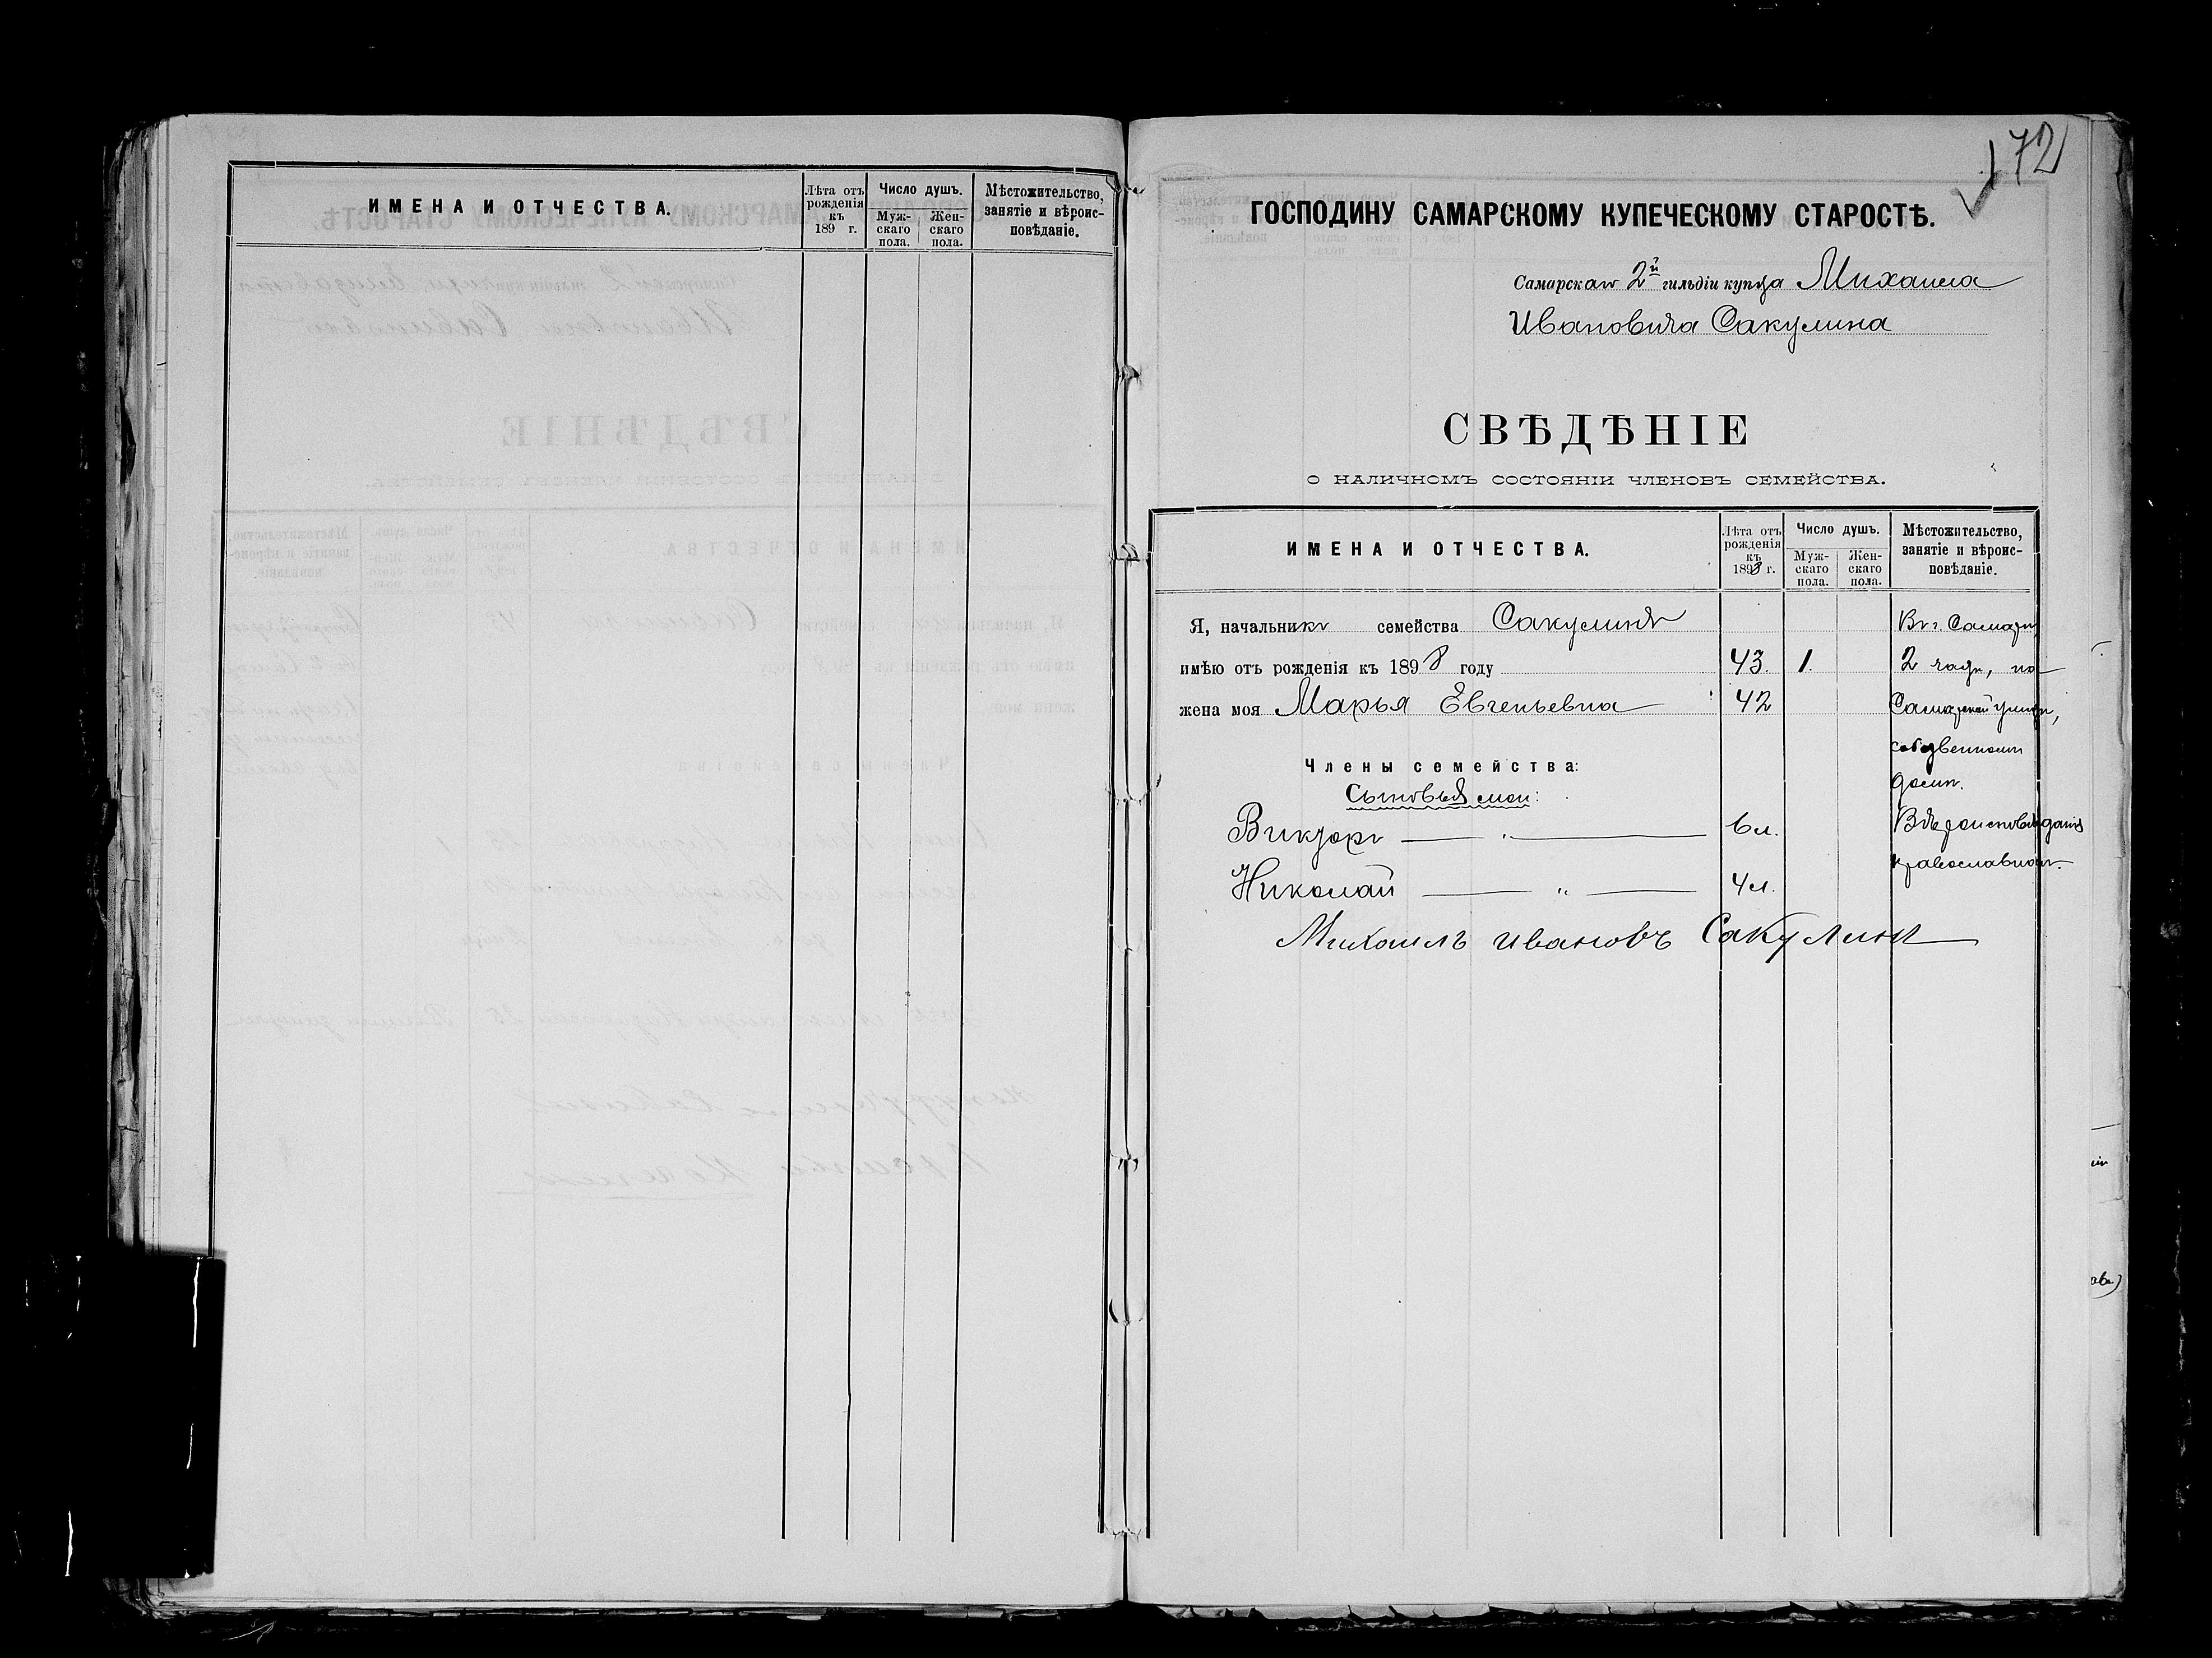 ИМЕНА И ОТЧЕСТВА.
Лѣта отъ рожденія къ 189 г.
Число душъ.
Мужскаго пола.
Женскаго пола.
Мѣстожительство, занятіе и вѣроисповѣданіе.
172
ГОСПОДИНУ САМАРСКОМУ КУПЕЧЕСКОМУ СТАРОСТѢ.
Самарскаго 2й гильдіи купца Михаила
Ивановича Сакулина
СВѢДѢНІЕ
О НАЛИЧНОМЪ СОСТОЯНІИ ЧЛЕНОВЪ СЕМЕЙСТВА.
ИМЕНА И ОТЧЕСТВА.
Лѣта отъ рожденія къ 1898 г.
Число душъ.
Мужскаго пола.
Женскаго пола.
Мѣстожительство, занятіе и вѣроисповѣданіе.
Я, начальникъ семейства Сакулинъ Въ г. Самарѣ,
имѣю отъ рожденія къ 1898 году 43. 1. 2 части, по
жена моя Марья Евгеньевна 42 Самарской улицѣ,
собственномъ
Члены семейства: домѣ.
Сыновья мои:
Викторъ — " — 6 л. Вѣроисповѣданія
православнаго.
Николай — " — 4 л.
Михаилъ Ивановъ Сакулинъ